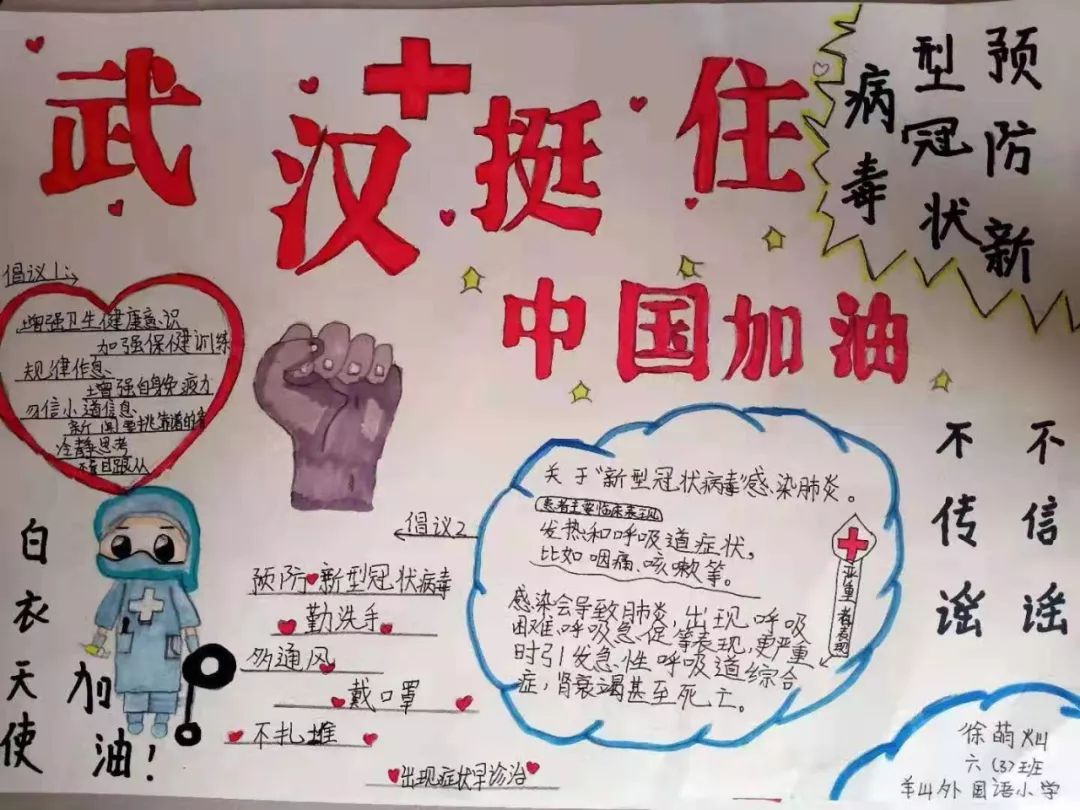 武汉挺住
中国加油
预防新
型冠状
病毒
倡议1:
增强卫生健康意识
加强保健训练
规律作息、
增强自身免疫力
勿信小道信息、
新闻要挑靠谱的看
冷静思考
不盲目跟从
倡议2
预防新型冠状病毒
勤洗手
多通风
戴口罩
不扎堆
出现症状早诊治
关于"新型冠状病毒"感染肺炎。
患者主要临床表现
发热和呼吸道症状。
比如咽痛、咳嗽等。
感染会导致肺炎,出现呼吸
困难,呼吸急促等表现,更严重
时引发急性呼吸道综合
症,肾衰竭甚至死亡。
严重者表现
不信谣
不传谣
白衣天使
加油!
徐萌灿
六(3)班
羊山外国语小学